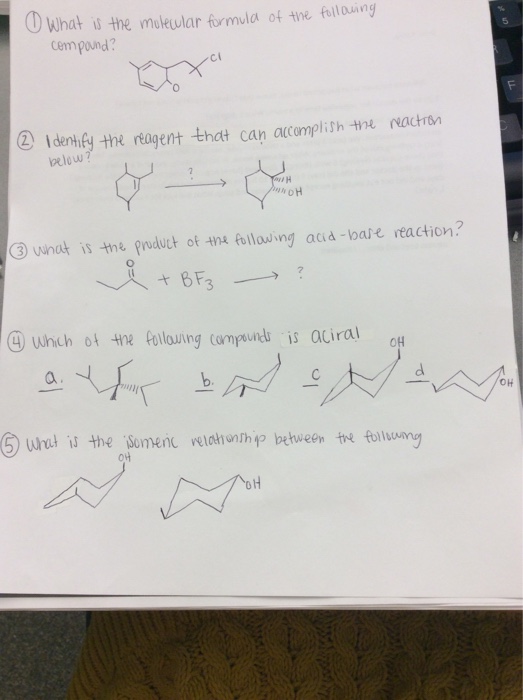 ① What is the molecular formula of the following
compound?
Cl
O
② Identify the reagent that can accomplish the reaction
below?
?
H
OH
③ What is the product of the following acid-base reaction?
O
+ BF3 → ?
④ Which of the following compounds is aciral
OH
a. b. c d
OH
⑤ What is the isomeric relationship between the following
OH
OH
%
5
F